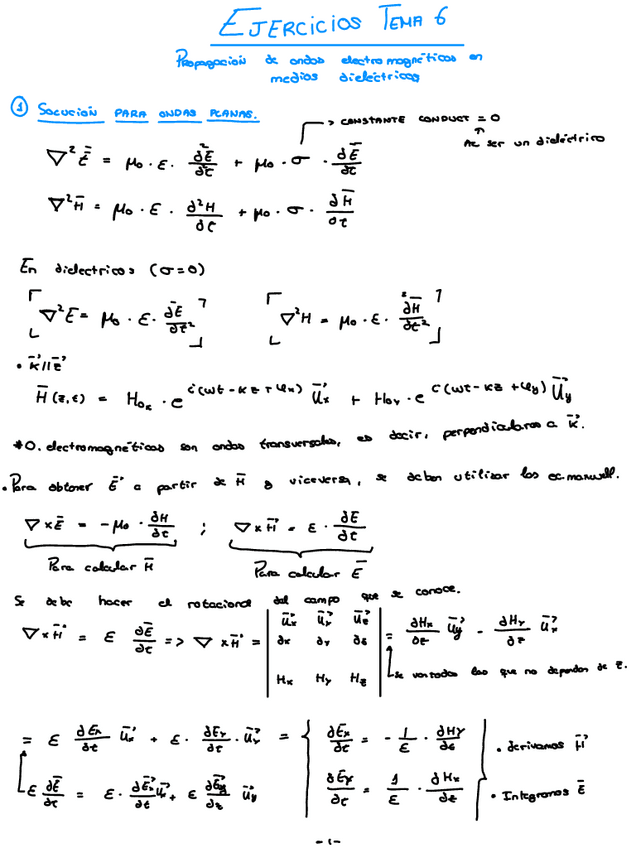 EJERCICIOS TEMA 6
Propagación de ondas electromagnéticas en
medios dieléctricos
① SOLUCIÓN PARA ONDAS PLANAS.
→ CONSTANTE CONDUCT = 0
AL SER UN dieléctrico
∇² Ē = μ₀ · ε · ∂²Ē/∂t + μ₀ · σ · ∂Ē/∂t
∇² H̄ = μ₀ · ε · ∂²H/∂t + μ₀ · σ · ∂H̄/∂t
En dielectricos (σ=0)
[∇²E = μ₀ · ε · ∂Ē/∂t²] [∇²H = μ₀ · ε · ∂²H̄/∂t²]
• k⃗ // z⃗
H̄ (z,t) = H₀ₓ · e^i(ωt - kz + φx) u⃗x + H₀y · e^i(ωt - kz + φy) u⃗y
*O. electromagnéticas son ondas transversales, es decir, perpendiculares a k⃗.
• Para obtener E⃗ a partir de H̄ y viceversa, se deben utilizar las ec. maxwell.
∇ x Ē = -μ₀ · ∂H/∂t ; ∇ x H⃗ = ε · ∂Ē/∂t
Para calcular H̄ Para calcular Ē
Se debe hacer el rotacional del campo que se conoce.
∇ x H⃗ = ε ∂Ē/∂t => ∇ x H⃗ = | u⃗x u⃗y u⃗z | = ∂Hx/∂z u⃗y - ∂Hy/∂z u⃗x
| ∂x ∂y ∂z |
| Hx Hy Hz |
que no dependen de z.
= ε ∂Ex/∂t u⃗x + ε · ∂Ey/∂t · u⃗y = { ∂Ex/∂t = - 1/ε · ∂Hy/∂z • derivamos H⃗
ε ∂Ē/∂t = ε · ∂E⃗x/∂t u⃗x + ε ∂E⃗y/∂z u⃗y { ∂Ey/∂t = 1/ε · ∂Hx/∂z • Integramos Ē
-1-